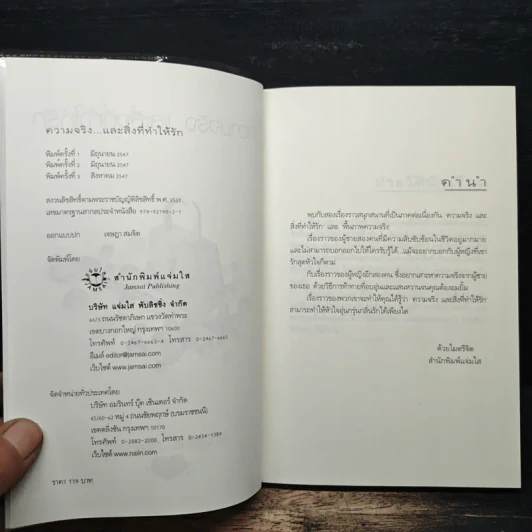 ความจริง...และสิ่งที่ทำให้รัก
พิมพ์ครั้งที่ 1 มิถุนายน 2547
พิมพ์ครั้งที่ 2 มิถุนายน 2547
พิมพ์ครั้งที่ 3 สิงหาคม 2547
สงวนลิขสิทธิ์ตามพระราชบัญญัติลิขสิทธิ์ พ.ศ. 2537
เลขมาตรฐานสากลประจำหนังสือ 974-92198-2-1
ออกแบบปก เจษฎา สมจิต
จัดพิมพ์โดย
สำนักพิมพ์แจ่มใส
Jamsai Publishing
บริษัท แจ่มใส พับลิชชิ่ง จำกัด
44/3 ถนนรัชดาภิเษก แขวงวัดท่าพระ
เขตบางกอกใหญ่ กรุงเทพฯ 10600
โทรศัพท์ 0-2467-6663-4 โทรสาร 0-2467-6665
อีเมล์ editor@jamsai.com
เว็บไซต์ www.jamsai.com
จัดจำหน่ายทั่วประเทศโดย
บริษัท อมรินทร์ บุ๊ค เซ็นเตอร์ จำกัด
65/60-62 หมู่ 4 ถนนชัยพฤกษ์ (บรมราชชนนี)
เขตตลิ่งชัน กรุงเทพฯ 10170
โทรศัพท์ 0-2882-2000 โทรสาร 0-2434-1384
เว็บไซต์ www.naiin.com
ราคา 119 บาท
คำนำ
พบกับสองเรื่องราวสนุกสนานที่เป็นภาคต่อเนื่องกัน ความจริง และ
สิ่งที่ทำให้รัก และ พื้นภาคความจริง
เรื่องราวของผู้ชายสองคนที่มีความลับซับซ้อนในชีวิตอยู่มากมาย
และไม่สามารถบอกออกไปให้ใครรับรู้ได้...แม้จะอยากบอกกับผู้หญิงที่เขา
รักสุดหัวใจก็ตาม
กับเรื่องราวของผู้หญิงอีกสองคน ซึ่งอยากเสาะหาความจริงจากผู้ชาย
ของเธอ ด้วยวิธีการท้าทายที่อบอุ่นและแสนหวานจนคุณต้องอมยิ้ม
เรื่องราวของพวกเขาจะทำให้คุณได้รู้ว่า ความจริง และสิ่งที่ทำให้รัก
สามารถทำให้หัวใจอุ่นกรุ่นกลิ่นรักได้เพียงใด
ด้วยไมตรีจิต
สำนักพิมพ์แจ่มใส